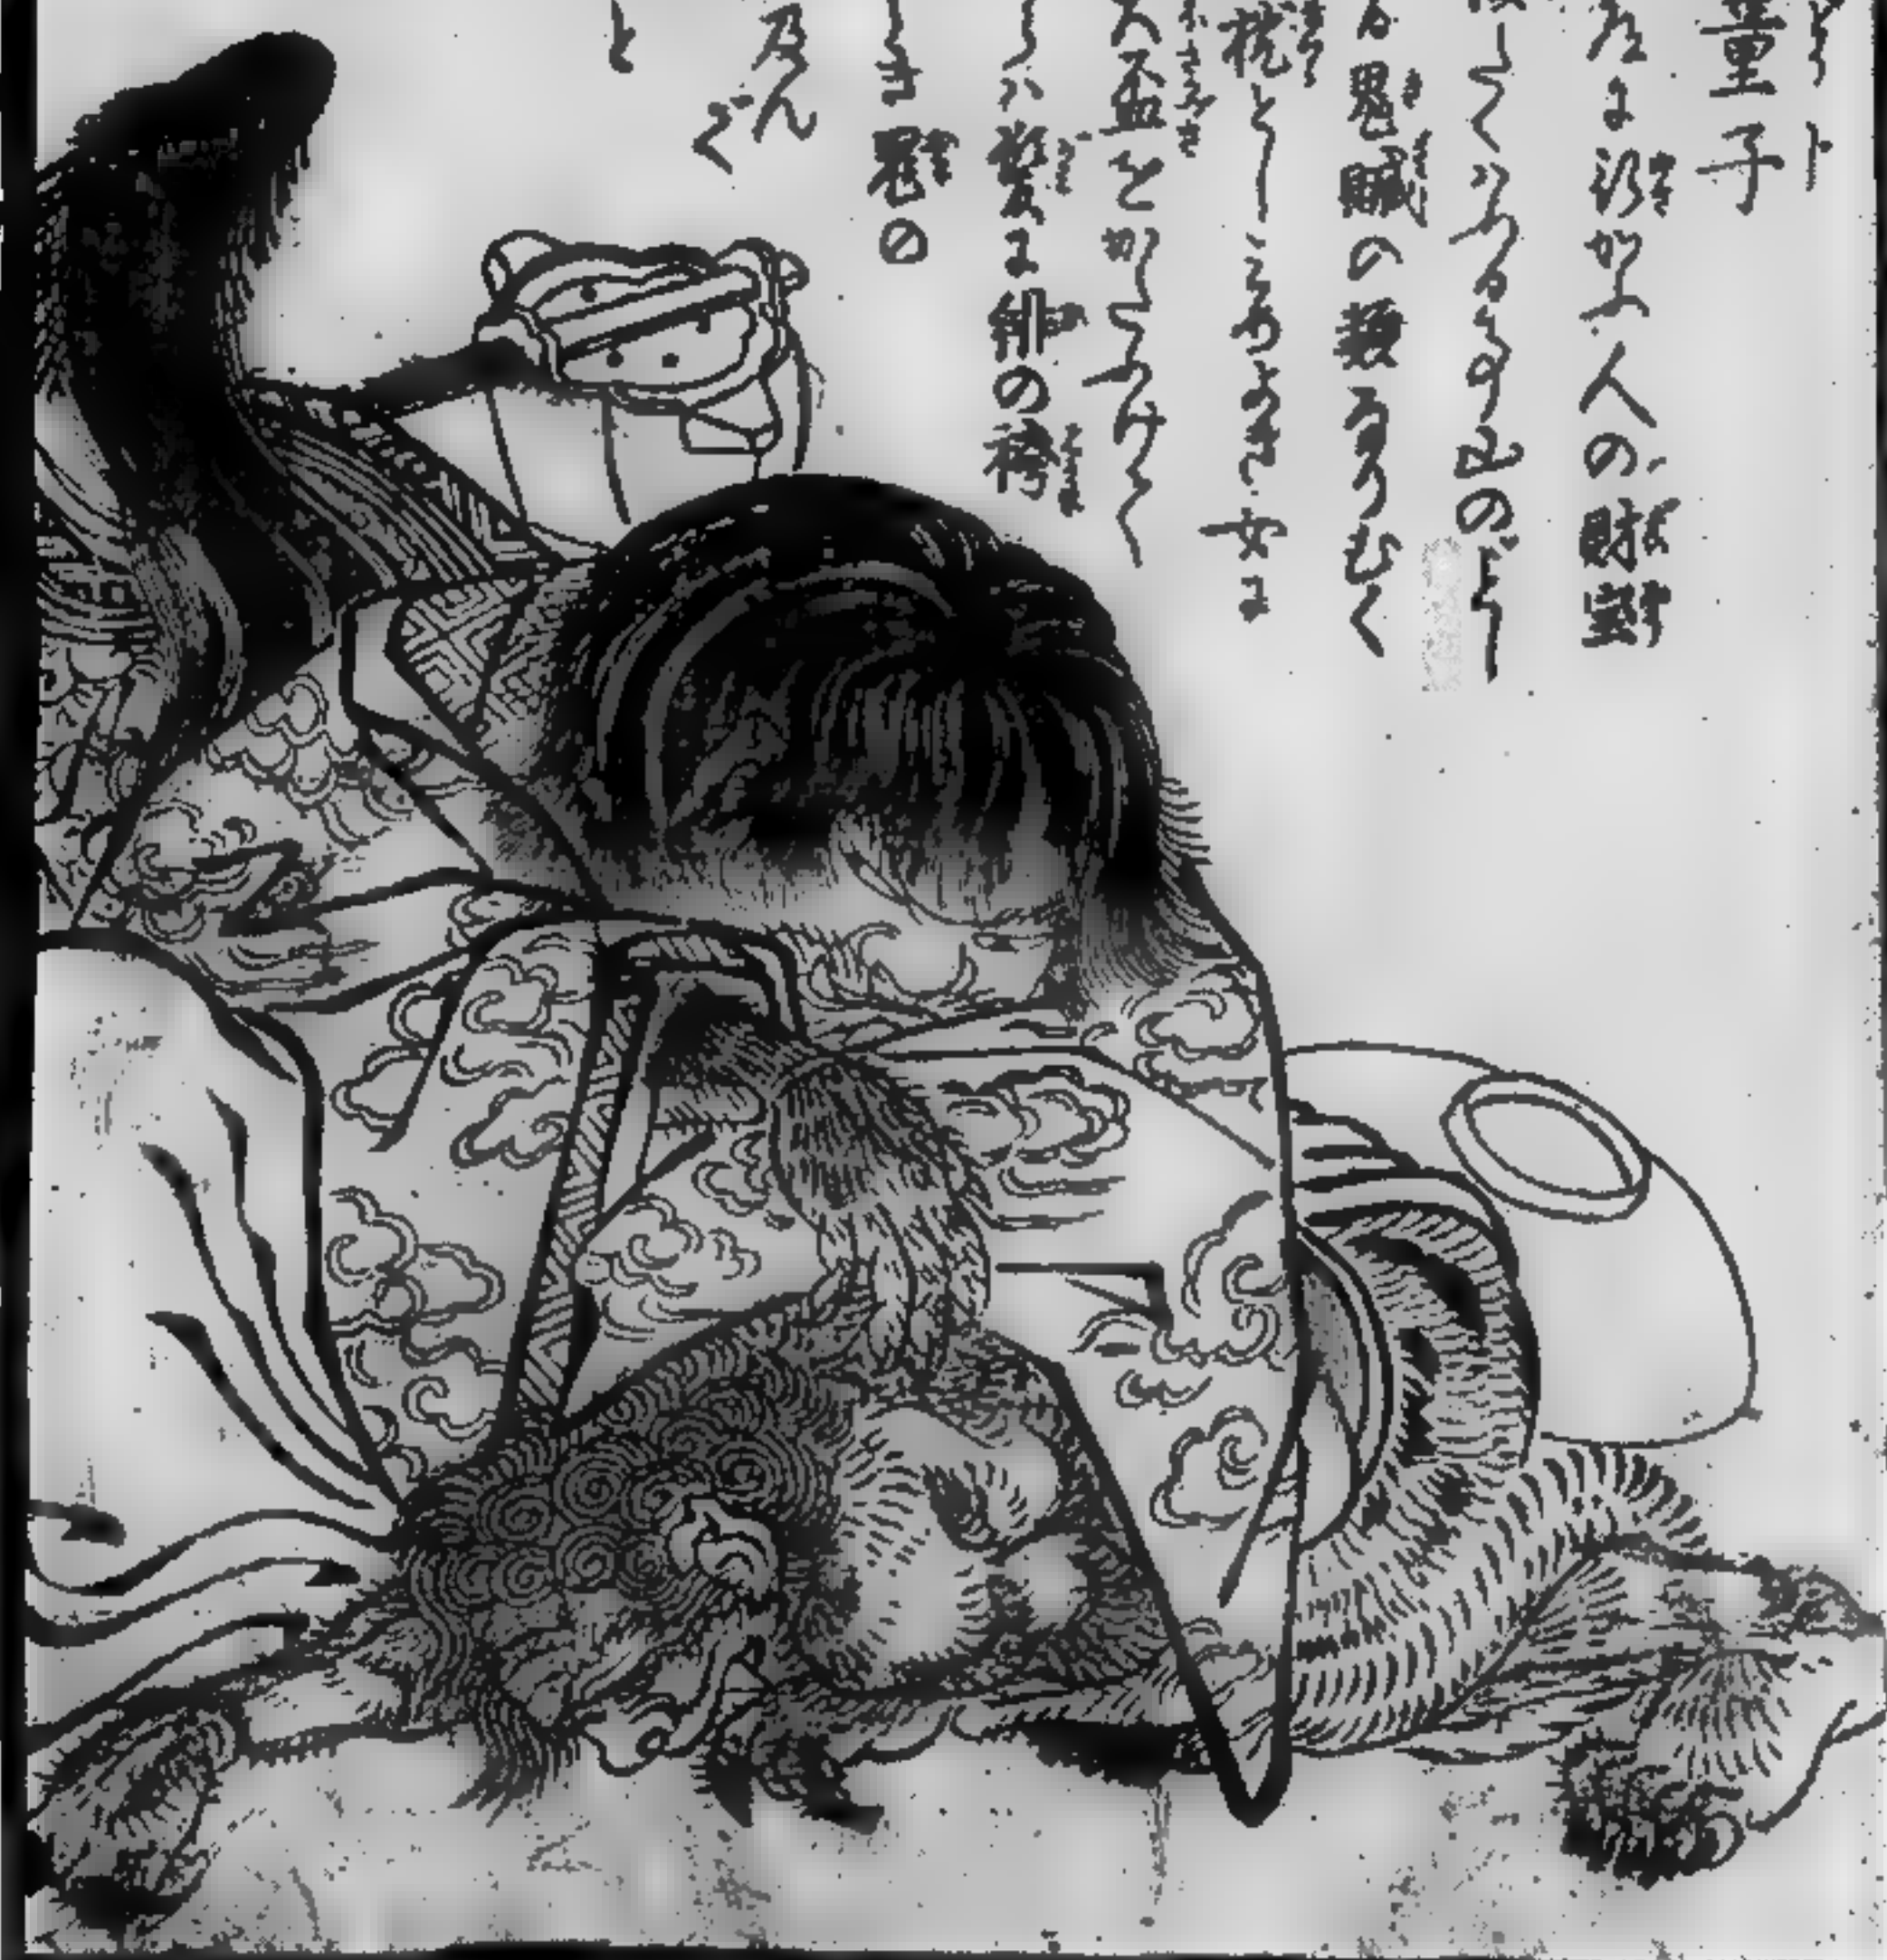 童子
に行かふ人の財宝
たくハふる事山のごとし
る鬼贓の類なりむく
枕としみめよき女に
大盃をかたふけて
らハ髪に緋の袴
き鬼の
及んで
と